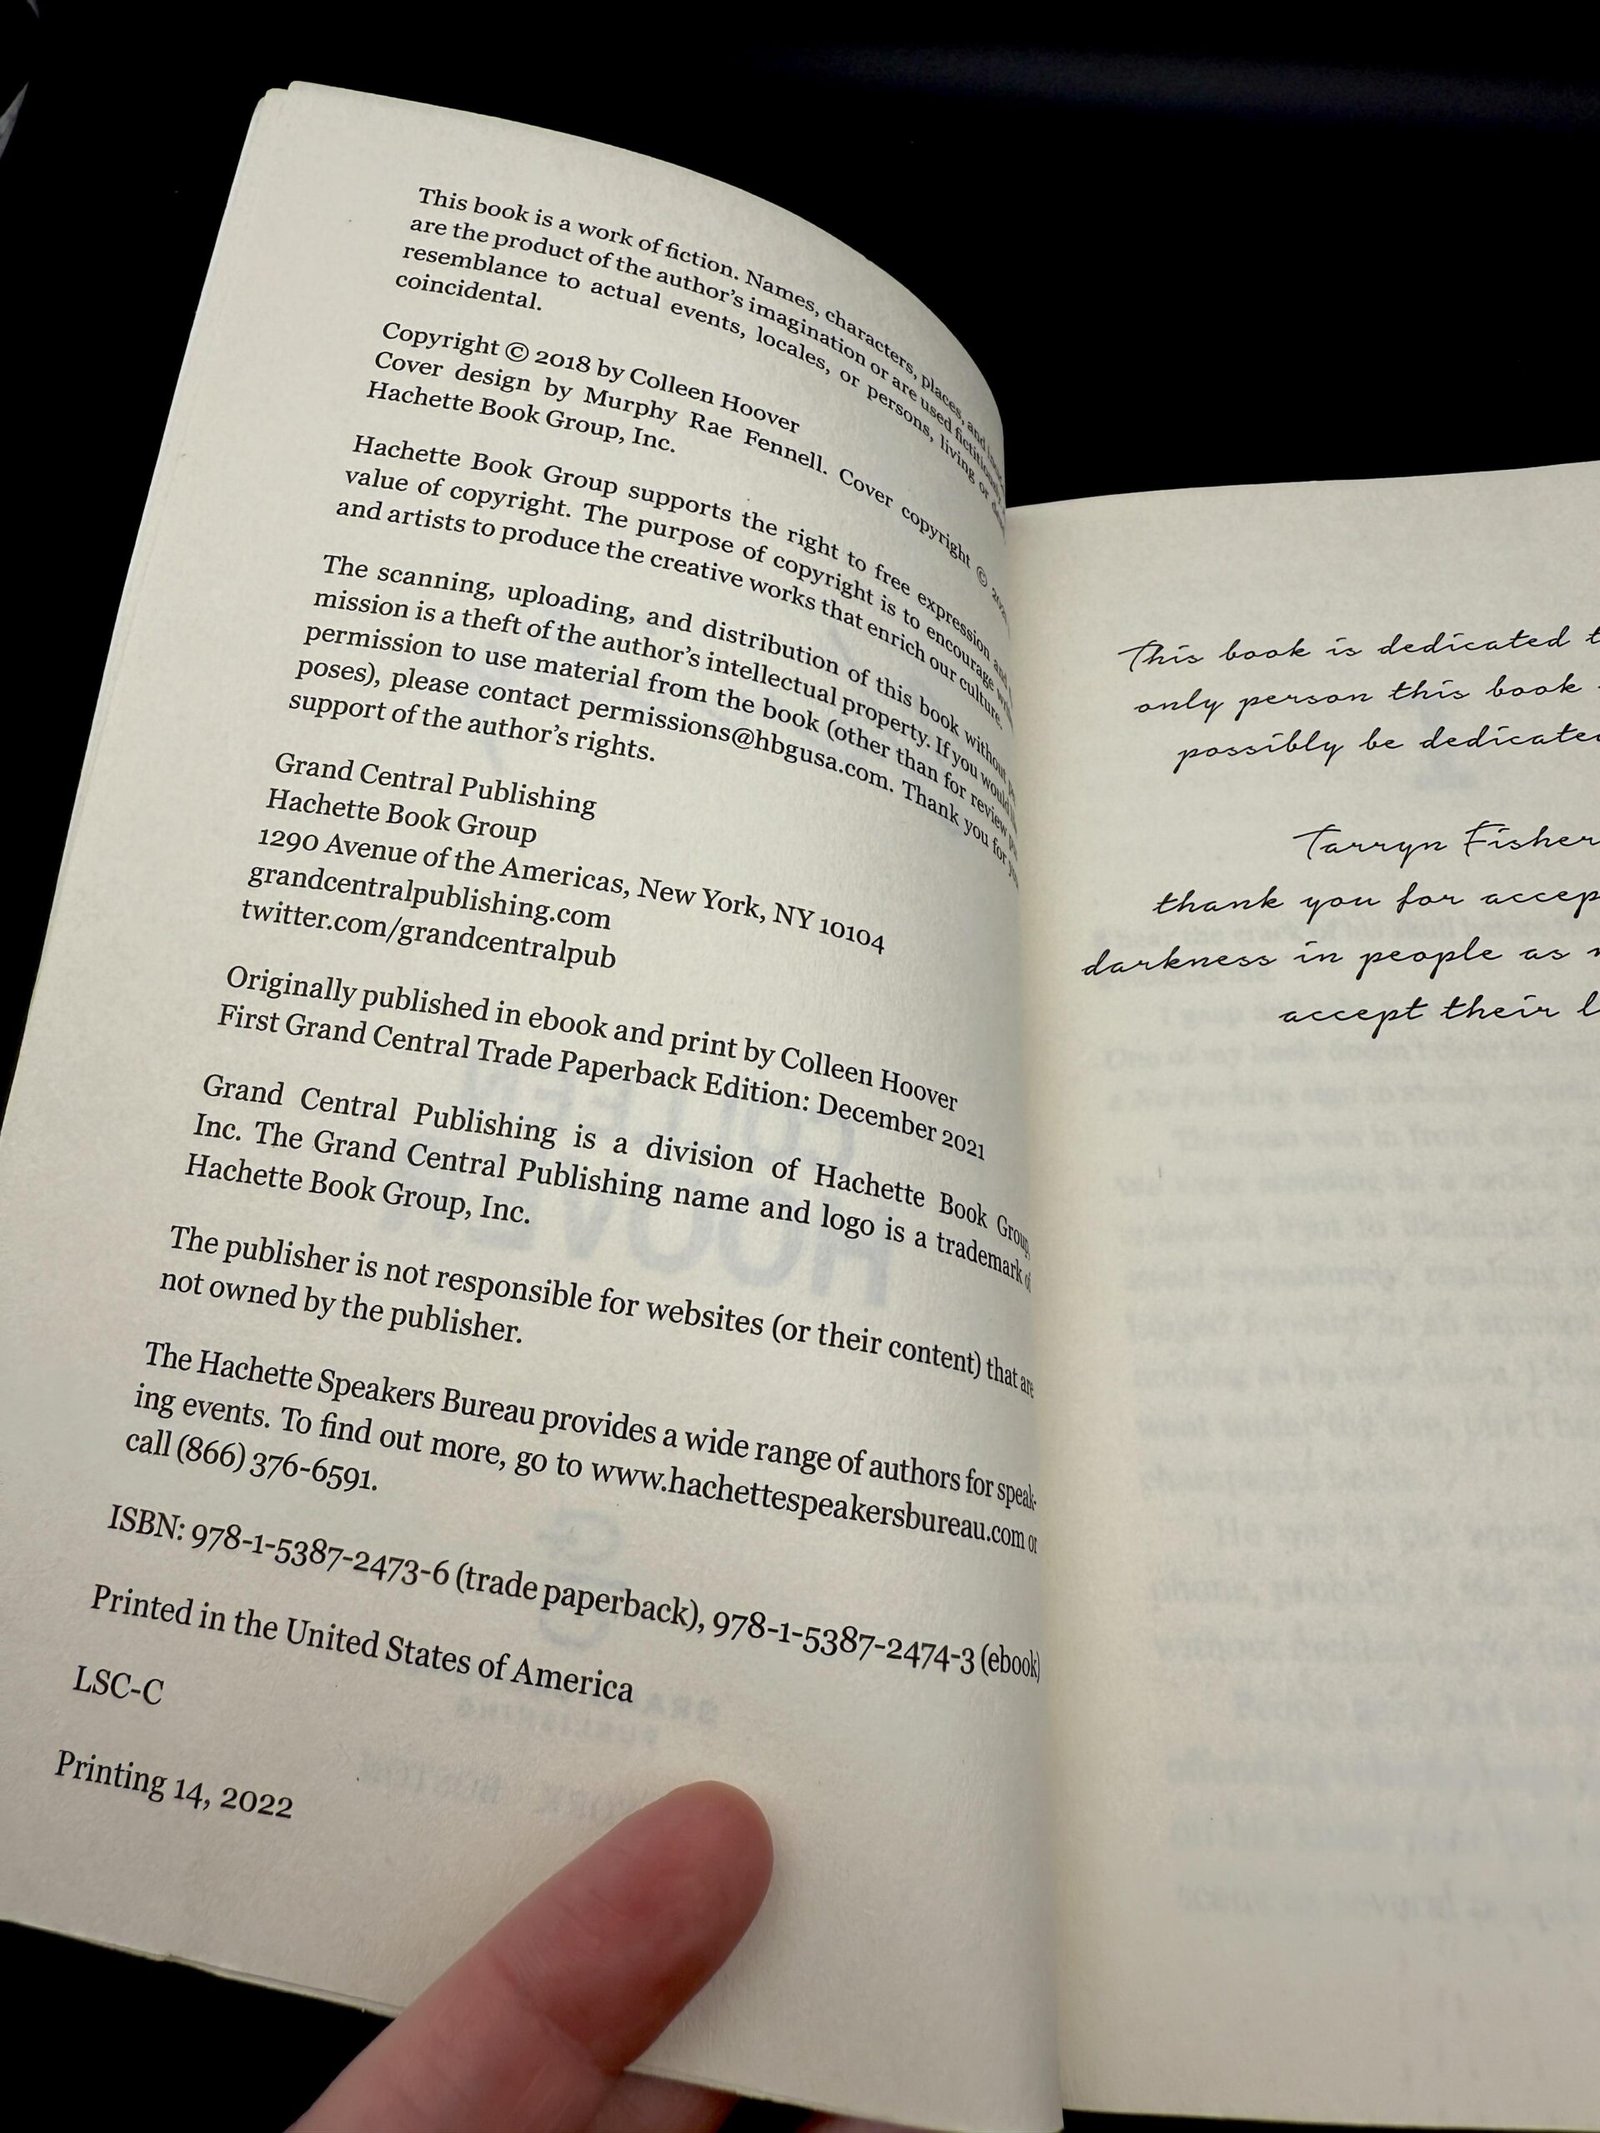 This book is a work of fiction. Names, characters, places, and
are the product of the author's imagination or are used fictitiously.
resemblance to actual events, locales, or persons, living or
coincidental.
Copyright © 2018 by Colleen Hoover
Cover design by Murphy Rae Fennell. Cover copyright ©
Hachette Book Group, Inc.
Hachette Book Group supports the right to free expression and
value of copyright. The purpose of copyright is to encourage
and artists to produce the creative works that enrich our culture.
The scanning, uploading, and distribution of this book without
mission is a theft of the author's intellectual property. If you would
permission to use material from the book (other than for review
poses), please contact permissions@hbgusa.com. Thank you for
support of the author's rights.
Grand Central Publishing
Hachette Book Group
1290 Avenue of the Americas, New York, NY 10104
grandcentralpublishing.com
twitter.com/grandcentralpub
Originally published in ebook and print by Colleen Hoover
First Grand Central Trade Paperback Edition: December 2021
Grand Central Publishing is a division of Hachette Book Group,
Inc. The Grand Central Publishing name and logo is a trademark of
Hachette Book Group, Inc.
The publisher is not responsible for websites (or their content) that are
not owned by the publisher.
The Hachette Speakers Bureau provides a wide range of authors for speak-
ing events. To find out more, go to www.hachettespeakersbureau.com or
call (866) 376-6591.
ISBN: 978-1-5387-2473-6 (trade paperback), 978-1-5387-2474-3 (ebook)
Printed in the United States of America
LSC-C
Printing 14, 2022
This book is dedicated
only person this book
possibly be dedicated
Tarryn Fisher
thank you for
darkness in people as
accept their